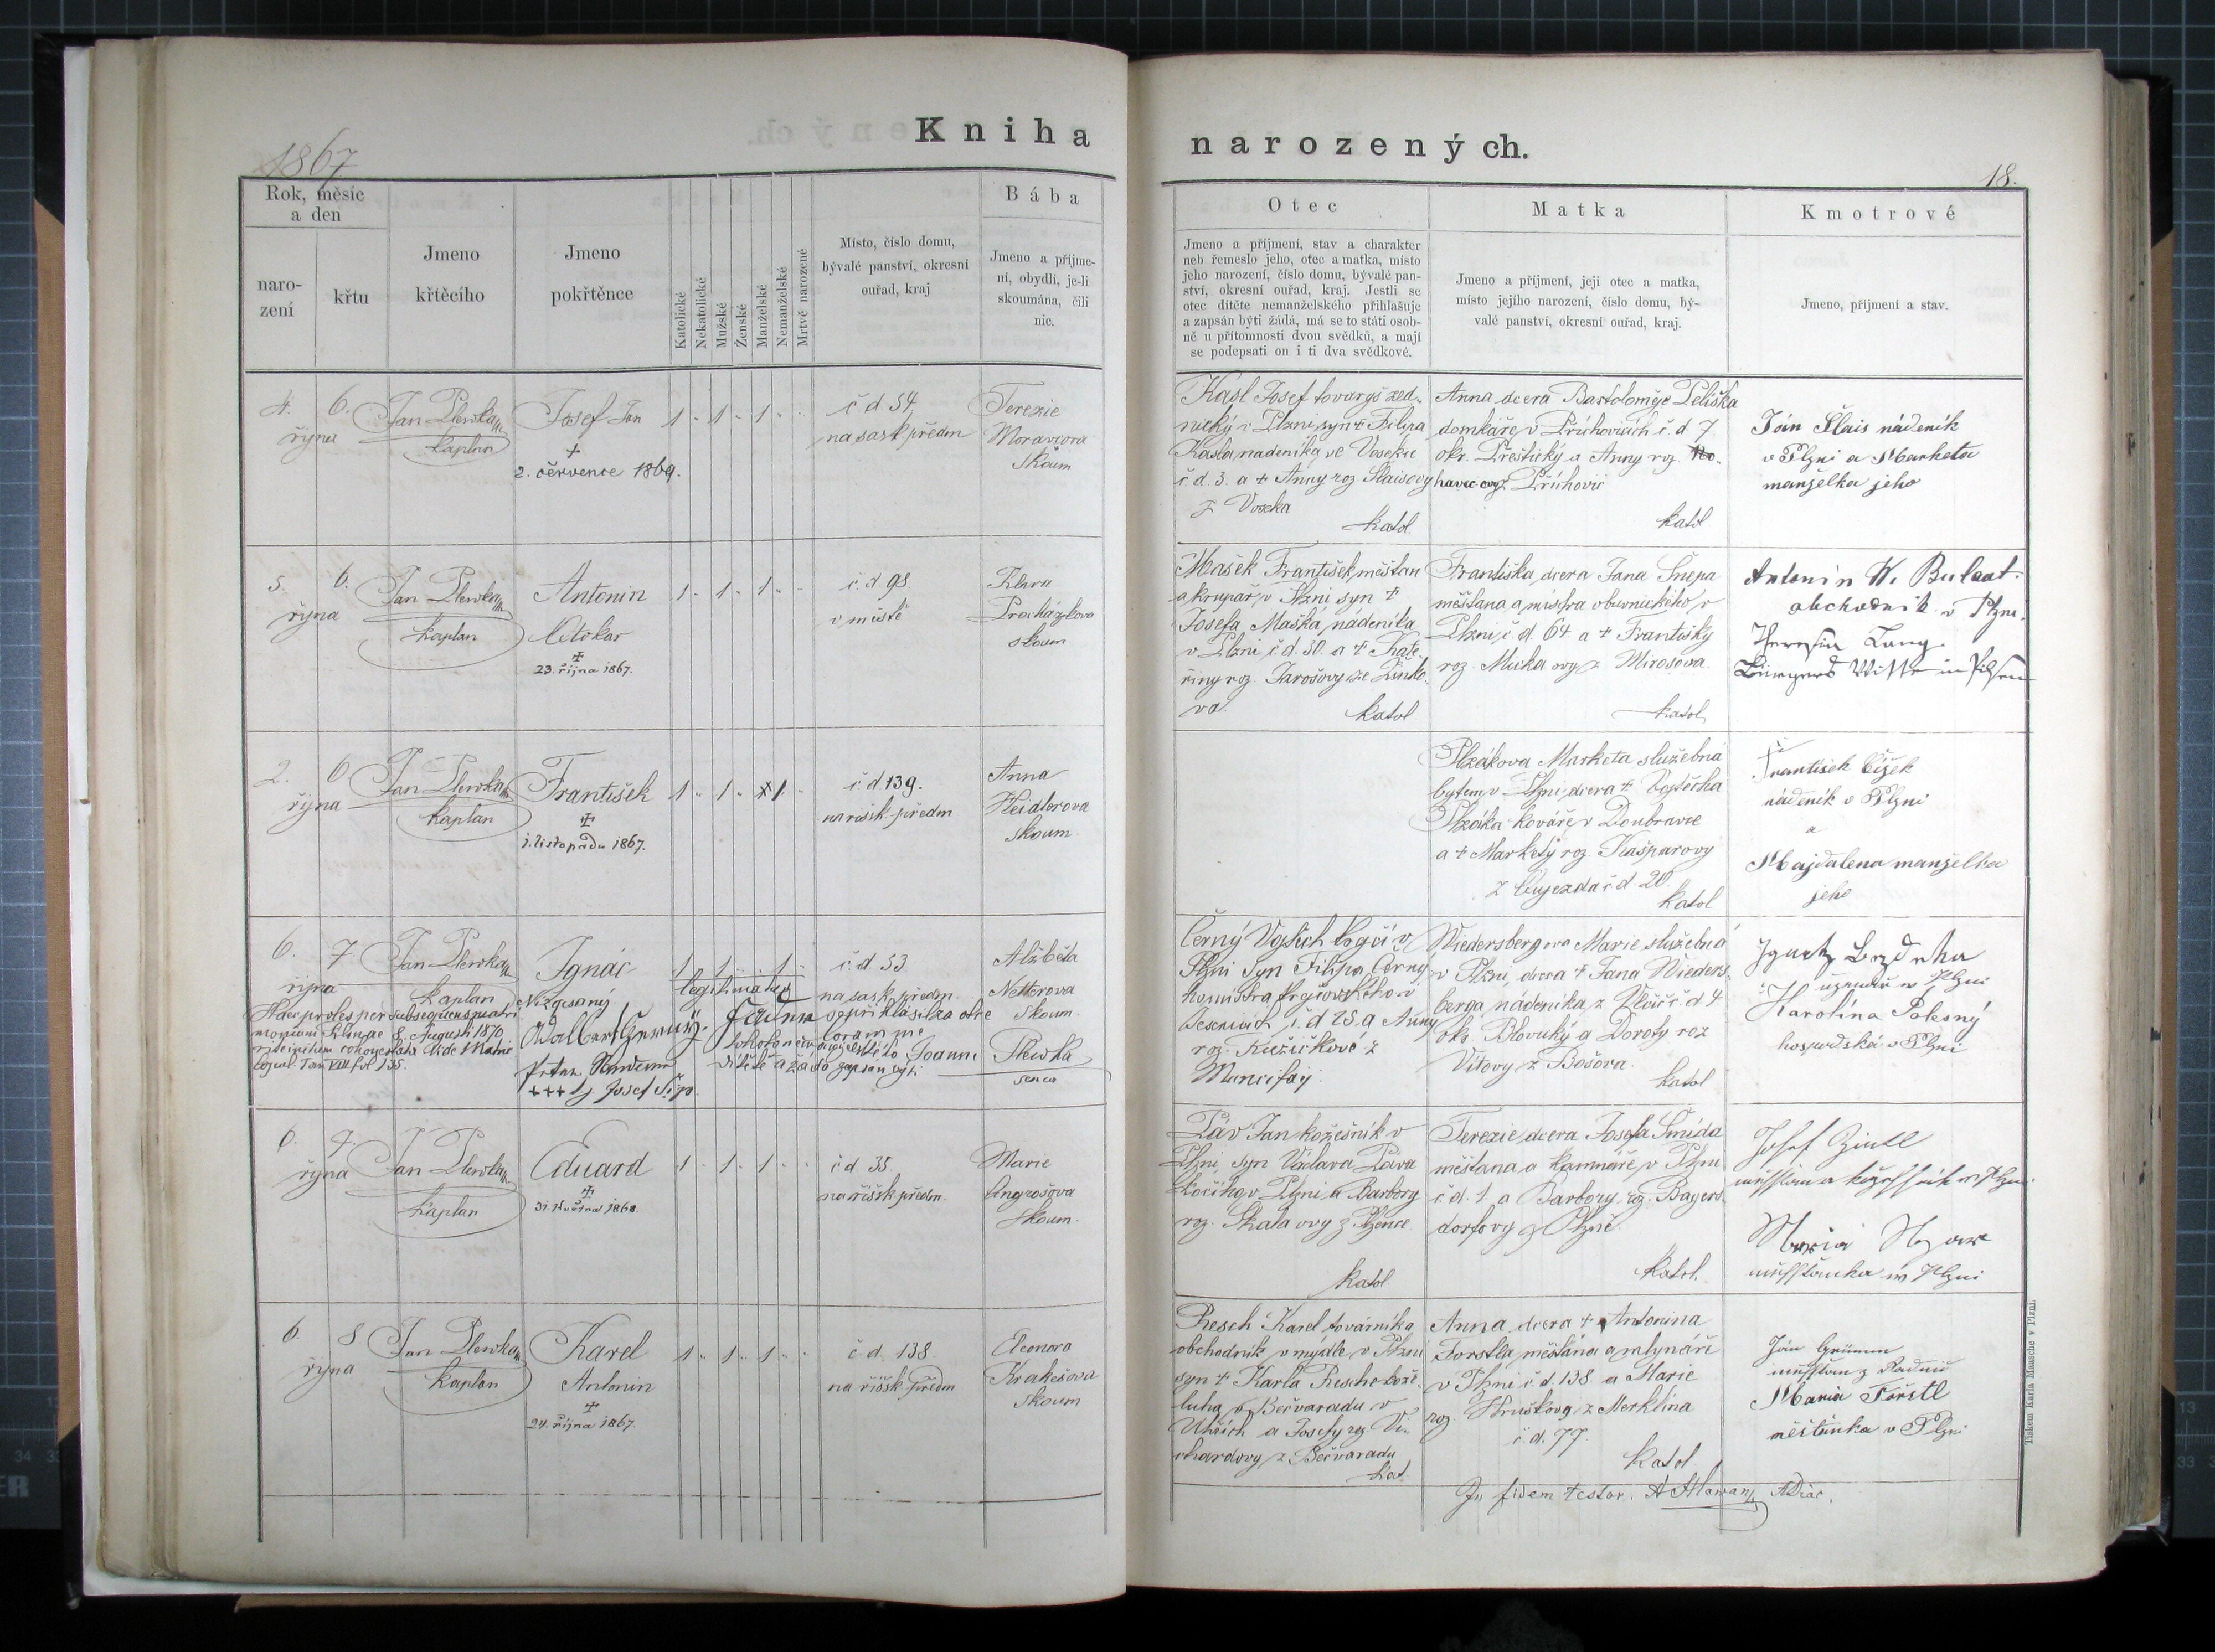 Kniha
narozených.
1867
18.
Rok, měsíc
a den
naro-
zení
křtu
Jmeno
křtěcího
Jmeno
pokřtěnce
Katolické
Nekatolické
Mužské
Ženské
Manželské
Nemanželské
Mrtvě narozené
Místo, číslo domu,
bývalé panství, okresní
ouřad, kraj
Bába
Jmeno a příjme-
ní, obydlí, je-li
skoumána, čili
nic.
Otec
Jmeno a příjmení, stav a charakter
neb řemeslo jeho, otec a matka, místo
jeho narození, číslo domu, bývalé pan-
ství, okresní ouřad, kraj. Jestli se
otec dítěte nemanželského přihlašuje
a zapsán býti žádá, má se to státi osob-
ně u přítomnosti dvou svědků, a mají
se podepsati on i ti dva svědkové.
Matka
Jmeno a příjmení, její otec a matka,
místo jejího narození, číslo domu, bý-
valé panství, okresní ouřad, kraj.
Kmotrové
Jmeno, příjmení a stav.
4. 6.
října
Jan Plewka
kaplan
Josef Jan
+
2. července 1869.
1 " 1 " 1 " "
č d 54
na sask předm
Terezie
Moravcova
Skoum
Kasl Josef tovaryš zed-
nický v Plzni, syn + Filipa
Kasla, nadenika ve Voseku
č d. 3. a + Anny roz Šlaisovy
z Voseka
katol
Anna dcera Bartoloměje Peliška
domkáře v Příchovicích č. d 7
okr. Přeštický a Anny roz.
z Příchovic
katol
Ján Šlais nádeník
v Plzni a Markéta
manželka jeho
5. 6.
října
Jan Plewka
kaplan
Antonin
Otokar
+
23. října 1867.
1 " 1 " 1 " "
č. d 98
v městě
Klara
Procházkova
skoum
Mašek František, měšťan
a krupař v Plzni syn +
Josefa Maška, nádeníka
v Plzni č d. 30. a + Kate-
řiny roz. Jarošovy ze Žinko-
va.
katol
Františka, dcera Jana Šnepa
měšťana a mistra obuvnického v
Plzni, č d. 64 a + Františky
roz. ovy z Mirošova
katol
Antonin W.
obchodník v Plzni.
Theresia Lang
Bürgers Witwe in Pilsen
2. 6
října
Jan Plewka
kaplan
František
+
1. listopadu 1867.
1 " 1 " x 1 "
č. d 139.
na říšsk. předm
Anna
Heidlerova
skoum.
Plzákova Marketa služebná
bytem v Plzni dcera + Vojtěcha
Plzáka kováře v Doubravce
a + Markety roz. Kašparovy
z Oujezda č d 20.
katol
František Čížek
nádeník v Plzni
a
Majdalena manželka
jeho
6. 7
října
Jan Plewka
kaplan
Ignác
1 1 1
legitimatus
č. d 53
na sask. předm.
Alžběta
Netterova
Skoum.
Haec proles per subsequens matri-
monium Pilsnae 8. Augusti 1870
rite initum cohonestata. Vide Matric
copul. Tom VIII fol 135.
Níže psaný
Adalbert Černý
se přihlásil za otce
tohoto nemanželského
dítěte a žádá zapsán býti
coram me
Joanne Plewka
+++ Josef Šíp
Černý Vojtěch krejčí v
Plzni syn Filipa Černý
mistra krejčovského v
Jesenicích č. d 25. a Anny
roz. Kužičkové z
Muncifaj
Wiedersbergova Marie služebná
v Plzni, dcera + Jana Wieders-
berga, nádeníka, z Vlčic č. d 4
okr. Blovický a Doroty roz
Vítovy z Bošova.
katol
Ignatz
v Plzni
Karolína Polesný
hospodská v Plzni
6. 7.
října
Jan Plewka
kaplan
Eduard
+
31. 1868.
1 " 1 " 1 " "
č d 35.
na říšsk předm.
Marie
Angrošova
Skoum.
Páv Jan kožešník v
Plzni, syn Václava Páva
kočího v Plzni a Barbory
roz. Skala ovy z Plzence
katol
Terezie, dcera Josefa Šmída
měšťana a kamnáře v Plzni
č d. 1. a Barbory, roz. Bayers-
dorfovy z Plzně.
Katol.
Josef Zintl
Maria
v Plzni
6. 8
října
Jan Plewka
kaplan
Karel
Antonin
+
24. října 1867
1 " 1 " 1 " "
č. d. 138
na říšsk. předm
Eleonora
Krakešova
skoum
Resch Karel továrníka
obchodník v mýdle v Plzni
syn + Karla Resche
v Bečvaradu v
Uhřích a Josefy roz Vi-
chardovy z Bečvaradu
kat
Anna, dcera + Antonina
Forstla, měšťána a mlynáře
v Plzni č d. 138 a Marie
roz. Hruškovy z Merklína
č. d. 77.
katol
Ján Grümm
měšťan z Radnic
Maria Förstl
měšťanka v Plzni
In fidem testor.
Tiskem Karla Maasche v Plzni.